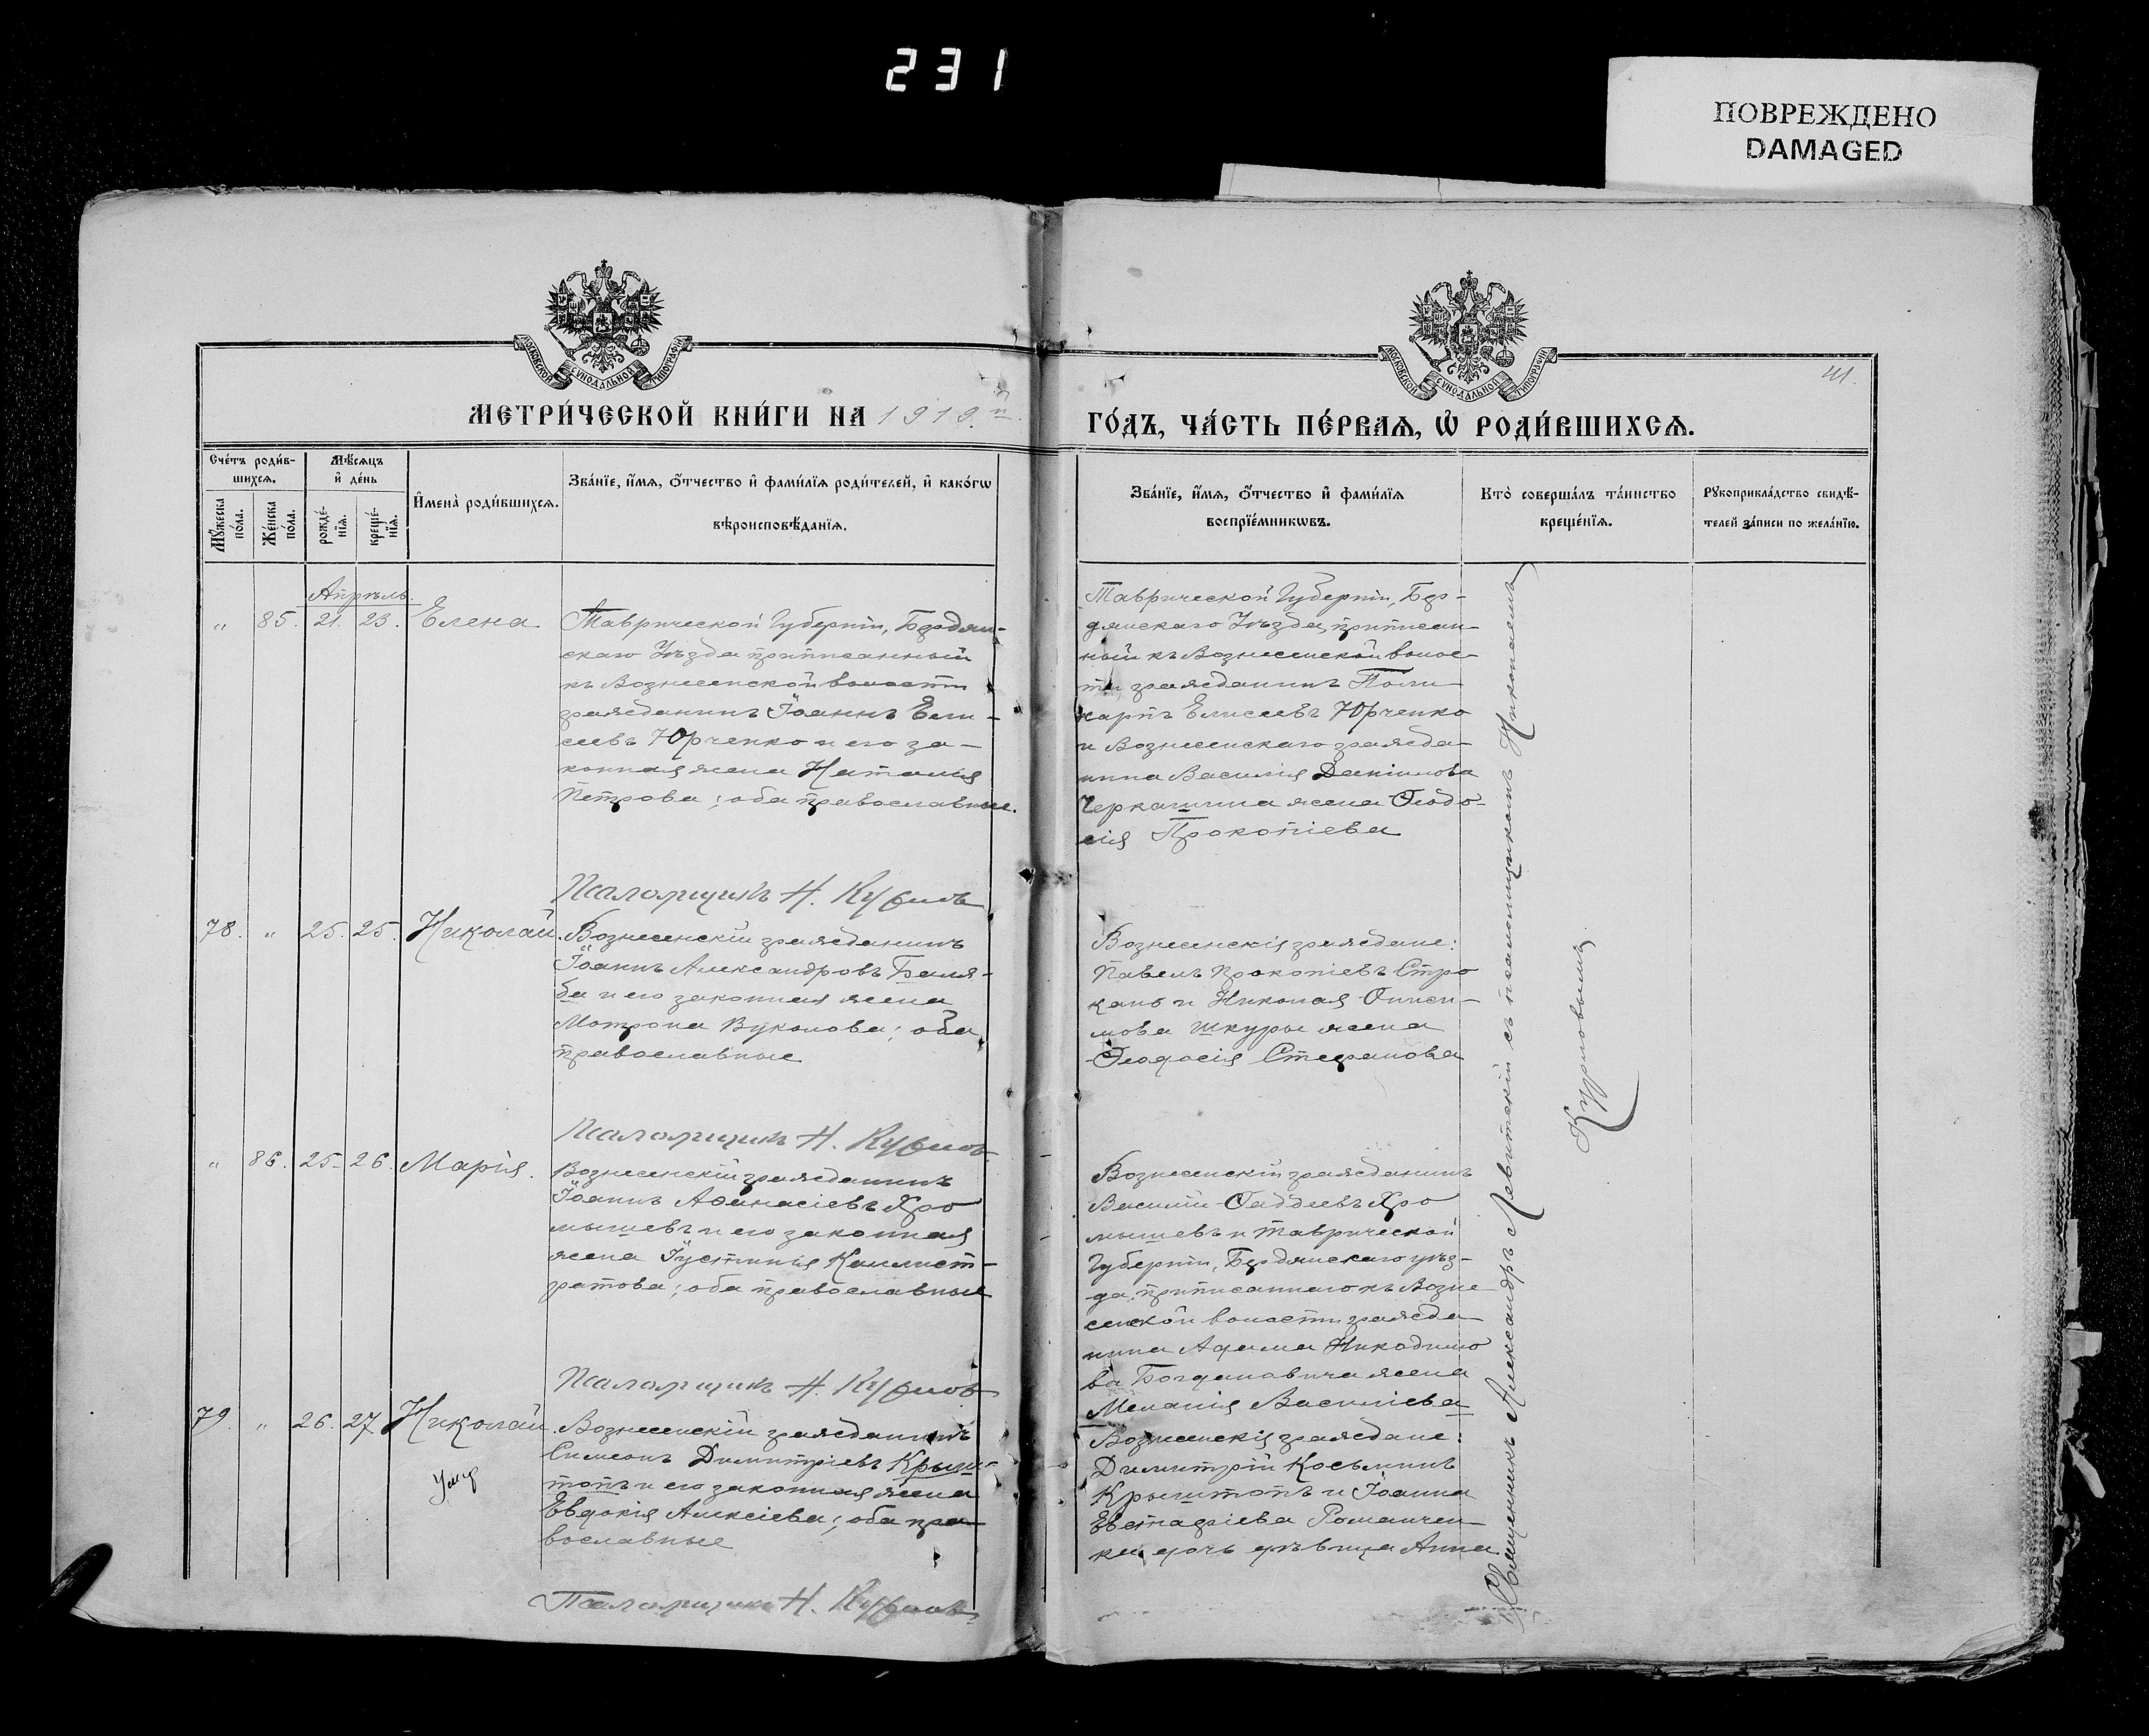 231
ПОВРЕЖДЕНО
DAMAGED
МОСКОВСКОЙ СѴНОДАЛЬНОЙ ТИПОГРАФІИ
МОСКОВСКОЙ СѴНОДАЛЬНОЙ ТИПОГРАФІИ
МЕТРИ́ЧЕСКОЙ КНИ́ГИ НА 1919 й
ГО́ДЪ, ЧА́СТЬ ПЕ́РВАѦ, Ѡ҆ РОДИ́ВШИХСѦ.
Сче́тъ роди́в-
шихсѧ.
Мѣ́сѧцъ
и҆ де́нь
Мꙋ́жеска
по́ла.
Же́нска
по́ла.
рожде́-
нїѧ.
креще́-
нїѧ.
И҆мена̀ роди́вшихсѧ.
Зва́нїе, и҆́мѧ, ѻ҆́тчество и҆ фами́лїѧ роди́телей, и҆ како́гѡ
вѣроисповѣ́данїѧ.
Зва́нїе, и҆́мѧ, ѻ҆́тчество и҆ фами́лїѧ
воспрїе́мникѡвъ.
Кто̀ соверша́лъ та́инство
креще́нїѧ.
Рꙋкоприкла́дство свидѣ́-
телей за́писи по жела́нїю.
Апрѣль.
„ 85. 21. 23. Елена
Таврической Губерніи, Бердян-
скаго Уѣзда приписанный
къ Вознесенской волости
гражданинъ Іоаннъ Ели-
сеевъ Юрченко и его за-
конная жена Наталія
Петрова; оба православные.
Псаломщикъ Н. Курловъ
Таврической Губерніи, Бер-
дянскаго Уѣзда, приписан-
ный къ Вознесенской волос-
ти гражданинъ Поли-
карпъ Елисеевъ Юрченко
и Вознесенскаго гражда-
нина Василія Даніилова
Черкашина жена Ѳеодо-
сія Прокопіева
78. „ 25. 25. Николай.
Вознесенскій гражданинъ
Іоаннъ Александровъ Баля-
ба и его законная жена
Матрона Вуколова; оба
православные
Псаломщикъ Н. Курловъ
Вознесенскія граждане:
Павелъ Прокопіевъ Стро
канъ и Николая Ониси-
мова Шкуры жена
Ѳеодосія Стефанова
„ 86. 25. 26. Марія.
Вознесенскій гражданинъ
Іоаннъ Аѳанасіевъ Хро
мышевъ и его законная
жена Іустинія Каллист-
ратова; оба православные
Псаломщикъ Н. Курловъ
Вознесенскій гражданинъ
Василій Ѳаддеевъ Хро
мышевъ и Таврической
Губерніи, Бердянскаго уѣз-
да, приписаннаго къ Возне
сенской волости гражда
нина Адама Никодимо
ва Богдановича жена
Меланія Василіева
79. „ 26. 27. Николай.
Умер
Вознесенскій гражданинъ
Симеонъ Димитріевъ Крыш-
топъ и его законная жена
Евдокія Алексіева; оба пра-
вославные
Псаломщикъ Н. Курловъ
Вознесенскія граждане:
Димитрій Косьминъ
Крыштопъ и Іоанна
Евстафіева Романчен-
ки дочь дѣвица Анна
Священникъ Александръ Левитскій съ псаломщикомъ Николаемъ
Курловымъ.